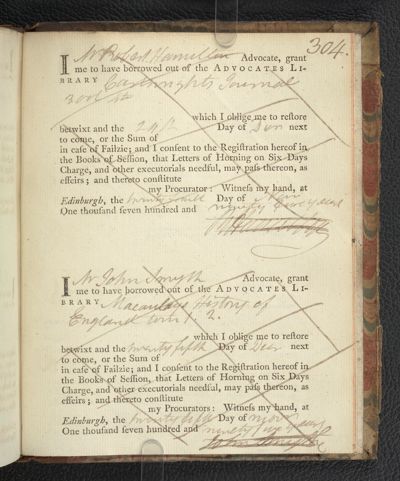 304.
I Mr Robert Hamilton Advocate, grant
me to have borrowed out of the ADVOCATES LI-
BRARY Cartwrights Journal
3 vols
which I oblige me to reſtore
betwixt and the 24th Day of next
to come, or the Sum of
in caſe of Failzie; and I conſent to the Regiſtration hereof in
the Books of Seſſion, that Letters of Horning on Six Days
Charge, and other executorials needful, may paſs thereon, as
effeirs; and thereto conſtitute
my Procurator: Witneſs my hand, at
Edinburgh, the Day of
One thouſand ſeven hundred and ninety five years
I Mr John Smyth Advocate, grant
me to have borrowed out of the ADVOCATES LI-
BRARY Macaulays History of
England vom 1. 2.
which I oblige me to reſtore
betwixt and the twenty fifth Day of Decr next
to come, or the Sum of
in caſe of Failzie; and I conſent to the Regiſtration hereof in
the Books of Seſſion, that Letters of Horning on Six Days
Charge, and other executorials needful, may paſs thereon, as
effeirs; and thereto conſtitute
my Procurators: Witneſs my hand, at
Edinburgh, the twenty fifth Day of
One thouſand ſeven hundred and ninety five years